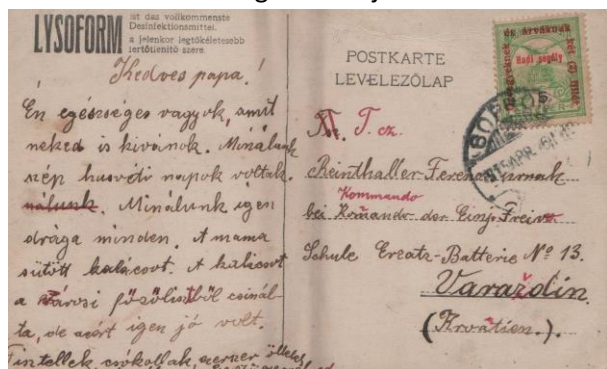 LYSOFORM
ist das vollkommenste
Desinfektionsmittel.
a jelenkor legtökéletesebb
fertőtlenítő szere.
Kedves papa!
Én egészséges vagyok, amit
neked is kivánok. Minálunk
szép husvéti napok voltak.
nálunk. Minálunk igen
drága minden. A mama
sütött kalácsot. A kalácsot
a városi főzőlisztből csinál-
ta, de azért igen jó volt.
Tintellek, csókollak,
POSTKARTE
LEVELEZŐLAP
T. cz.
Reinthaller Ferencz urnak
Kommando
bei Komando der Einj. Freiw
Schule Ersatz-Batterie No 13.
Varaždin
(Kroatien.).
özvegyeknek és árváknak két (2) fillér
Hadi segély
SOPRON
915 APR.